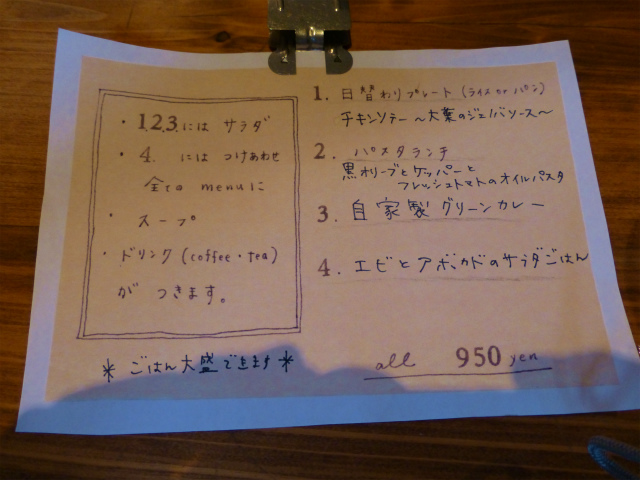 ・1.2.3.には サラダ
・4. には つけあわせ
全ての menuに
・スープ
・ドリンク(coffee・tea)
が つきます。
＊ごはん大盛できます＊
1. 日替わりプレート (ライス or パン)
チキンソテー 〜大葉のジェノバソース〜
2. パスタランチ
黒オリーブとケッパーと
フレッシュトマトのオイルパスタ
3. 自家製グリーンカレー
4. エビとアボカドのサラダごはん
all 950 yen